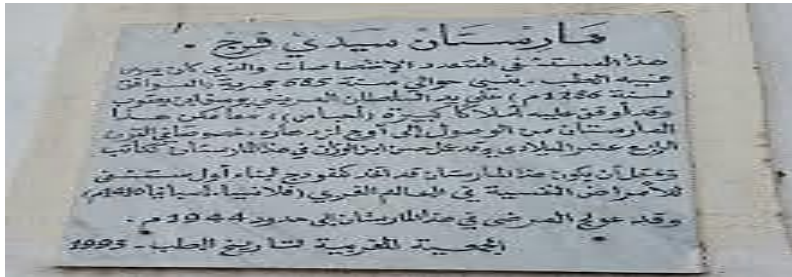 مارستان سيدي فرج .
هذا المستشفى المتعدد الإختصاصات والذي كان يدرس
فيه الطب، بني حوالي سنة 685 هجرية (الموافق
لسنة 1286م) على يد السلطان المريني يوسف ابن يعقوب
وقد أوقف عليه أملاكا كثيرة (أحباس)، مما مكن هذا
المارستان من الوصول إلى أوج ازدهاره، خصوصا في القرن
الرابع عشر الميلادي وقد عمل حسن ابن الوزان في هذا المارستان ككاتب
ويحتمل أن يكون هذا المارستان قد اتخذ كنموذج لبناء أول مستشفى
للأمراض النفسية في العالم الغربي (فلانسيا، أسبانيا 1410م)
وقد عولج المرضى في هذا المارستان إلى حدود 1944 م .
الجمعية المغربية لتاريخ الطب - 1993